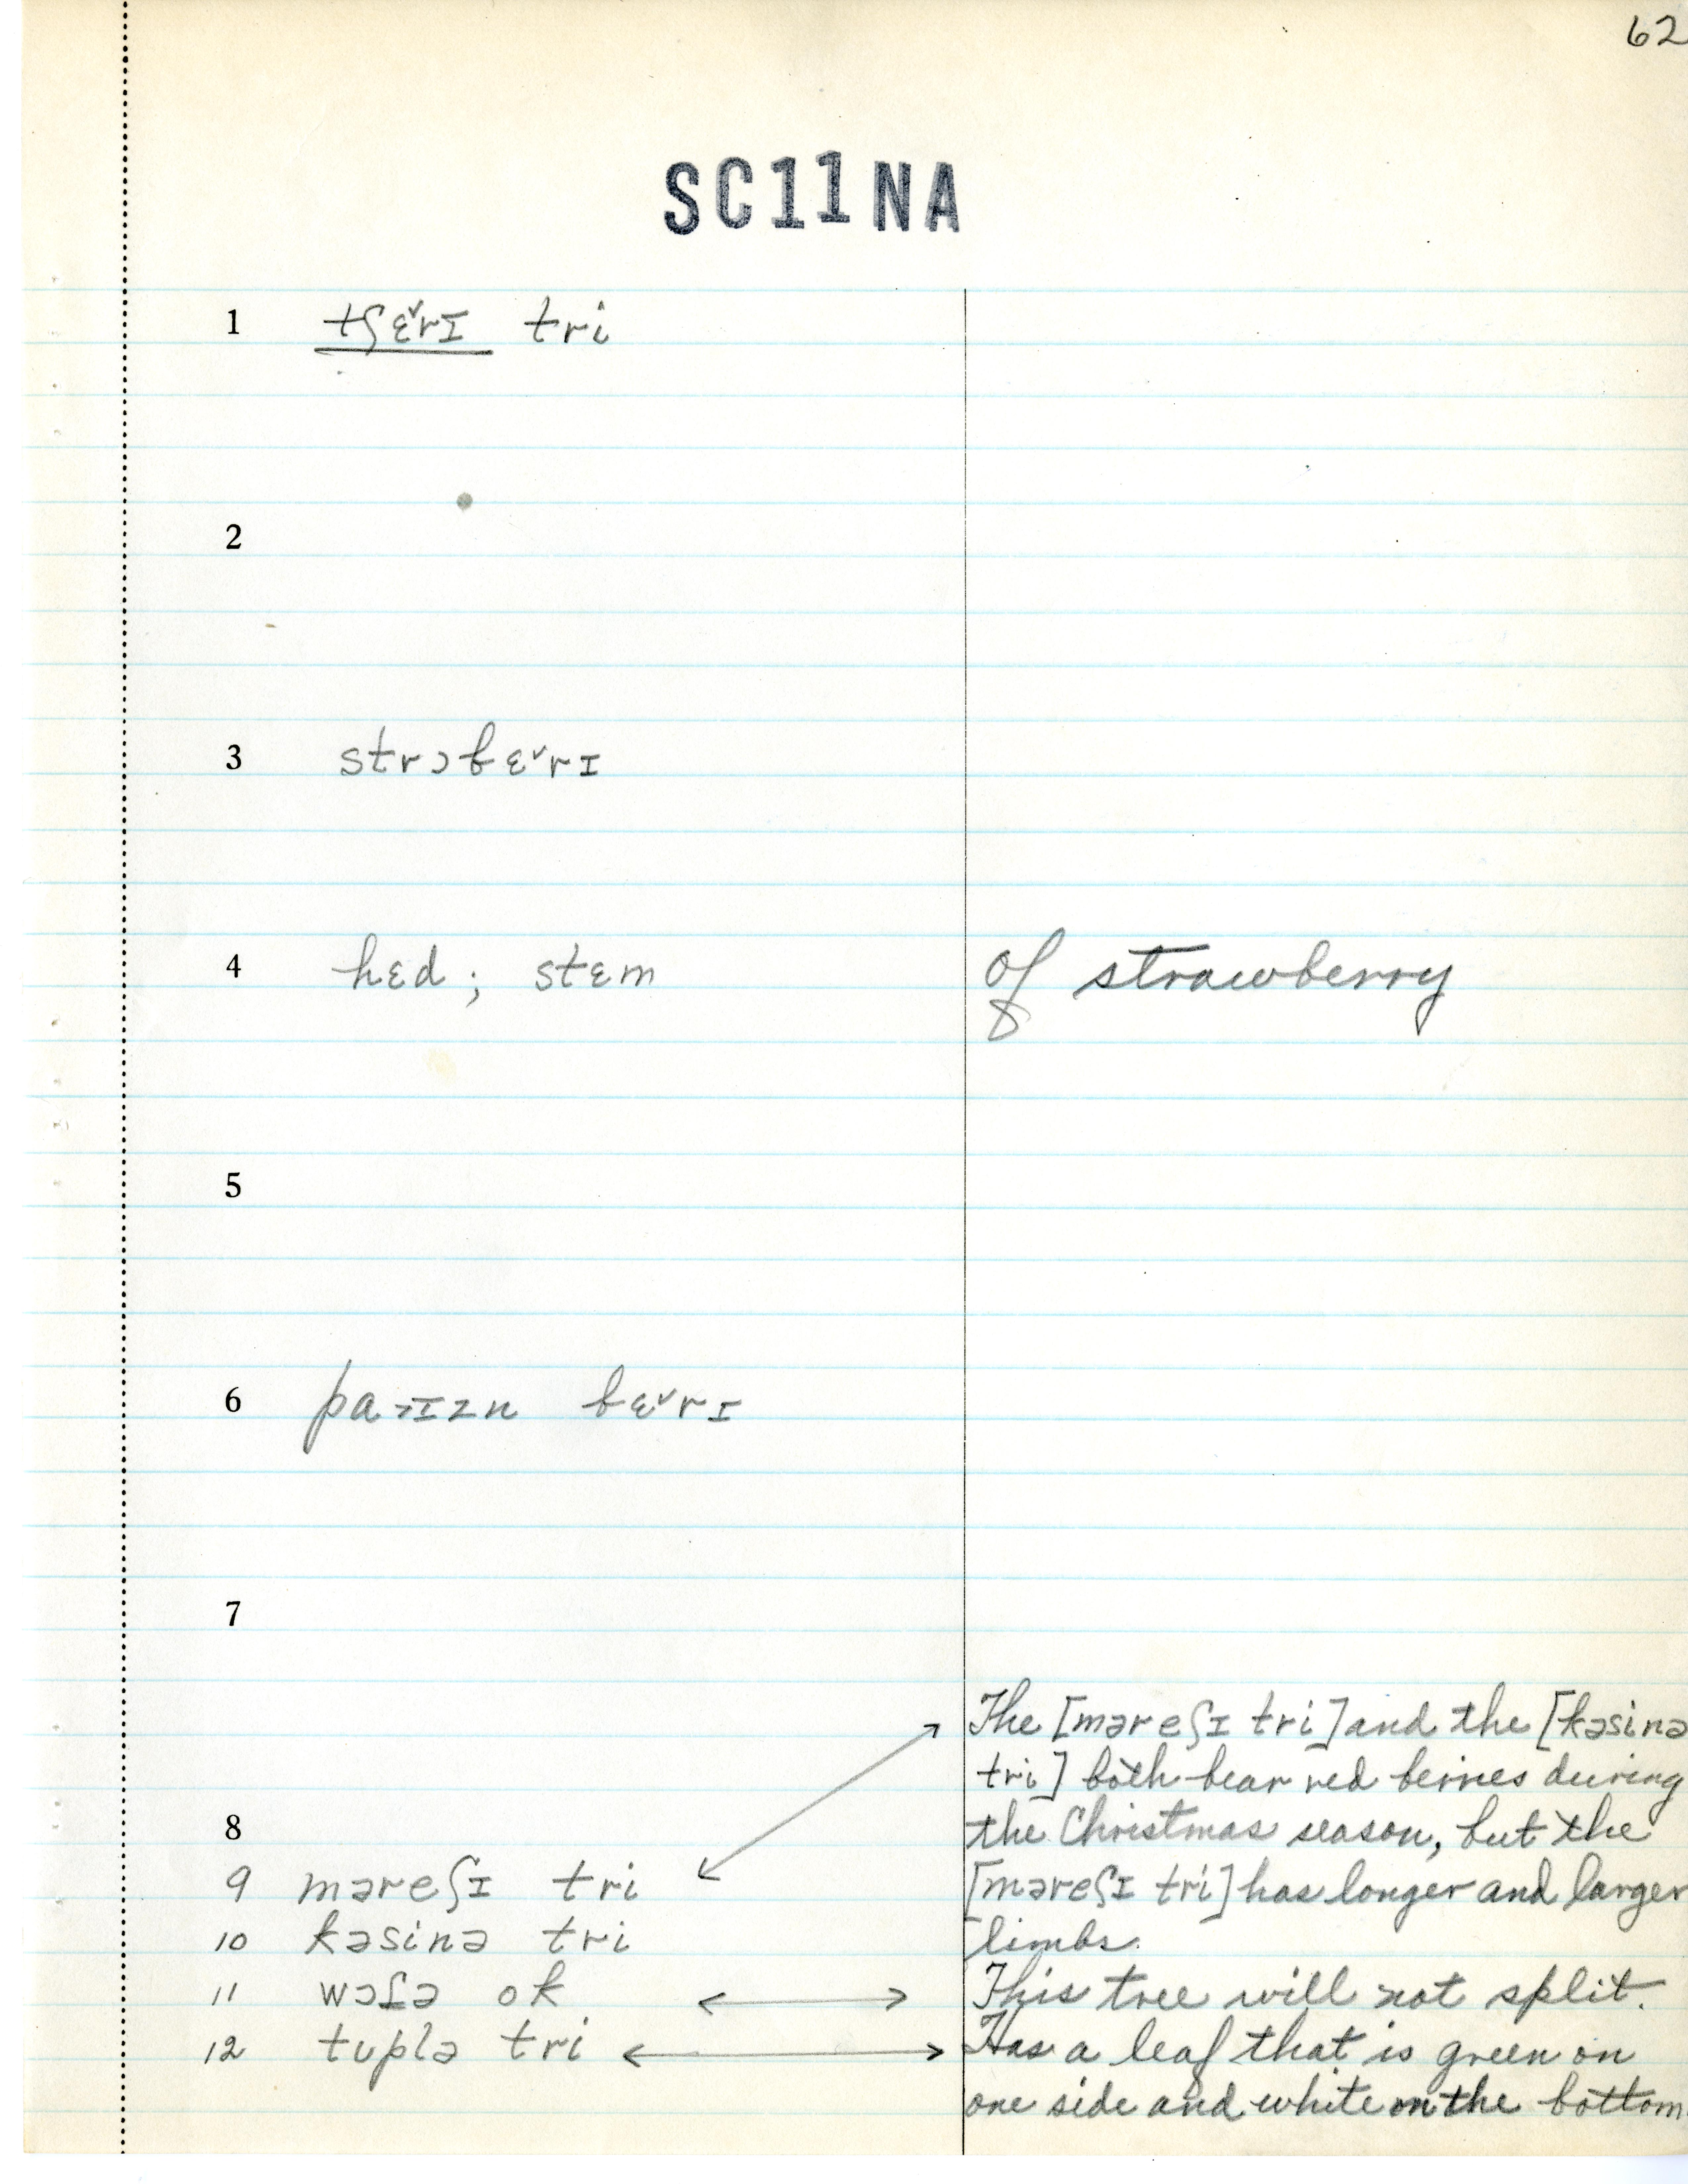 62
SC11NA
1 tʃɛ˅rɪ tri
2
3 strɔbɛ˅rɪ
4 hɛd; stɛm of strawberry
5
6 bɛ˅rɪ
7
The [məreʃɪ tri] and the [kəsinə
tri] both bear red berries during
the Christmas season, but the
8
9 məreʃɪ tri [məreʃɪ tri] has longer and larger
10 kəsinə tri limbs.
11 ok This tree will not split.
12 tuplə tri Has a leaf that is green on
one side and white on the bottom.